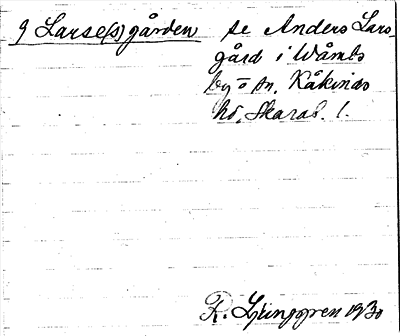 g Larse(s)gården se Anders Lars
gård i Wåmbs
by o sn, Kåkinds
hd, Skarab. l.
R. Ljunggren 1930